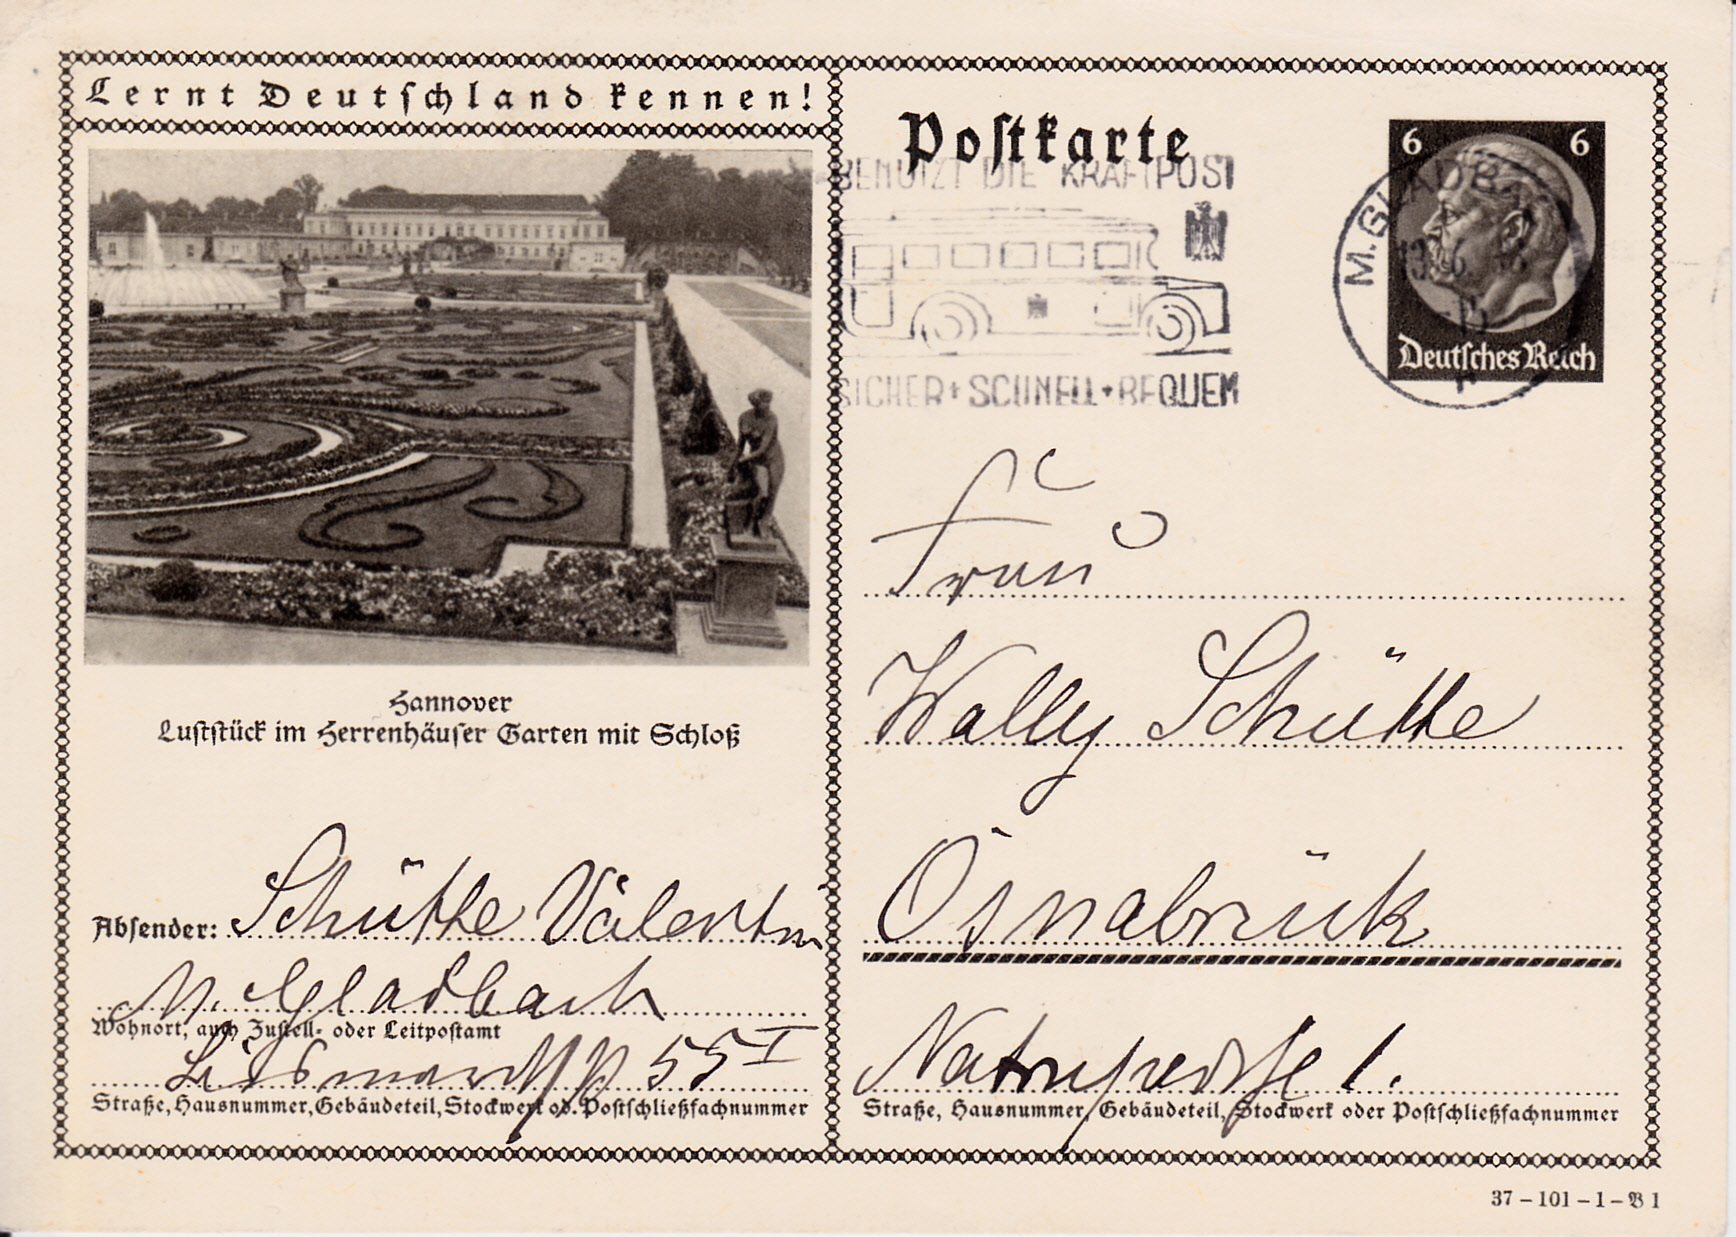 Lernt Deutschland kennen!
Hannover
Luststück im Herrenhäuser Garten mit Schloß
Absender: Schütte Valentin
M. Gladbach
Wohnort, auch Zustell- oder Leitpostamt
55 I
Straße, Hausnummer, Gebäudeteil, Stockwerk od. Postschließfachnummer
Postkarte
BENUTZT DIE KRAFTPOST
SICHER + SCHNELL + BEQUEM
6 6
Deutsches Reich
M. GLADBA
Frau
Wally Schütte
Osnabrück
1.
Straße, Hausnummer, Gebäudeteil, Stockwerk oder Postschließfachnummer
37 – 101 – 1 – B 1